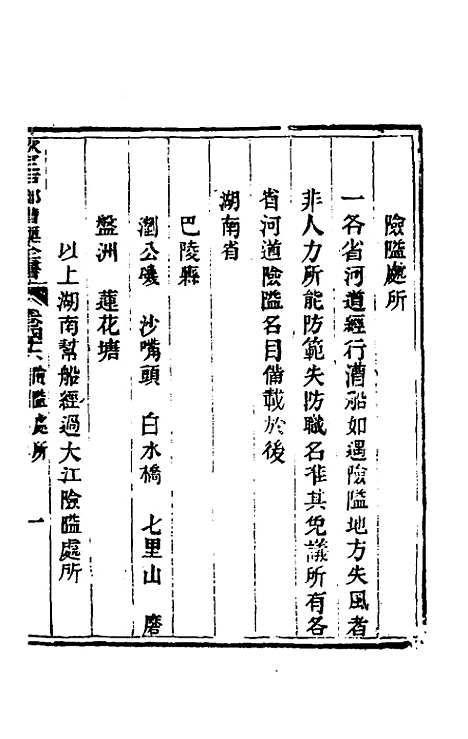 險隘處所
一各省河道經行漕船如遇險隘地方失風者
非人力所能防範失防職名准其免議所有各
省河道險隘名目備載於後
湖南省
巴陵縣
瀏公磯 沙嘴頭 白水橋 七里山 磨
盤洲 蓮花塘
以上湖南幫船經過大江險隘處所
欽定戶部漕運全書 險隘處所 一